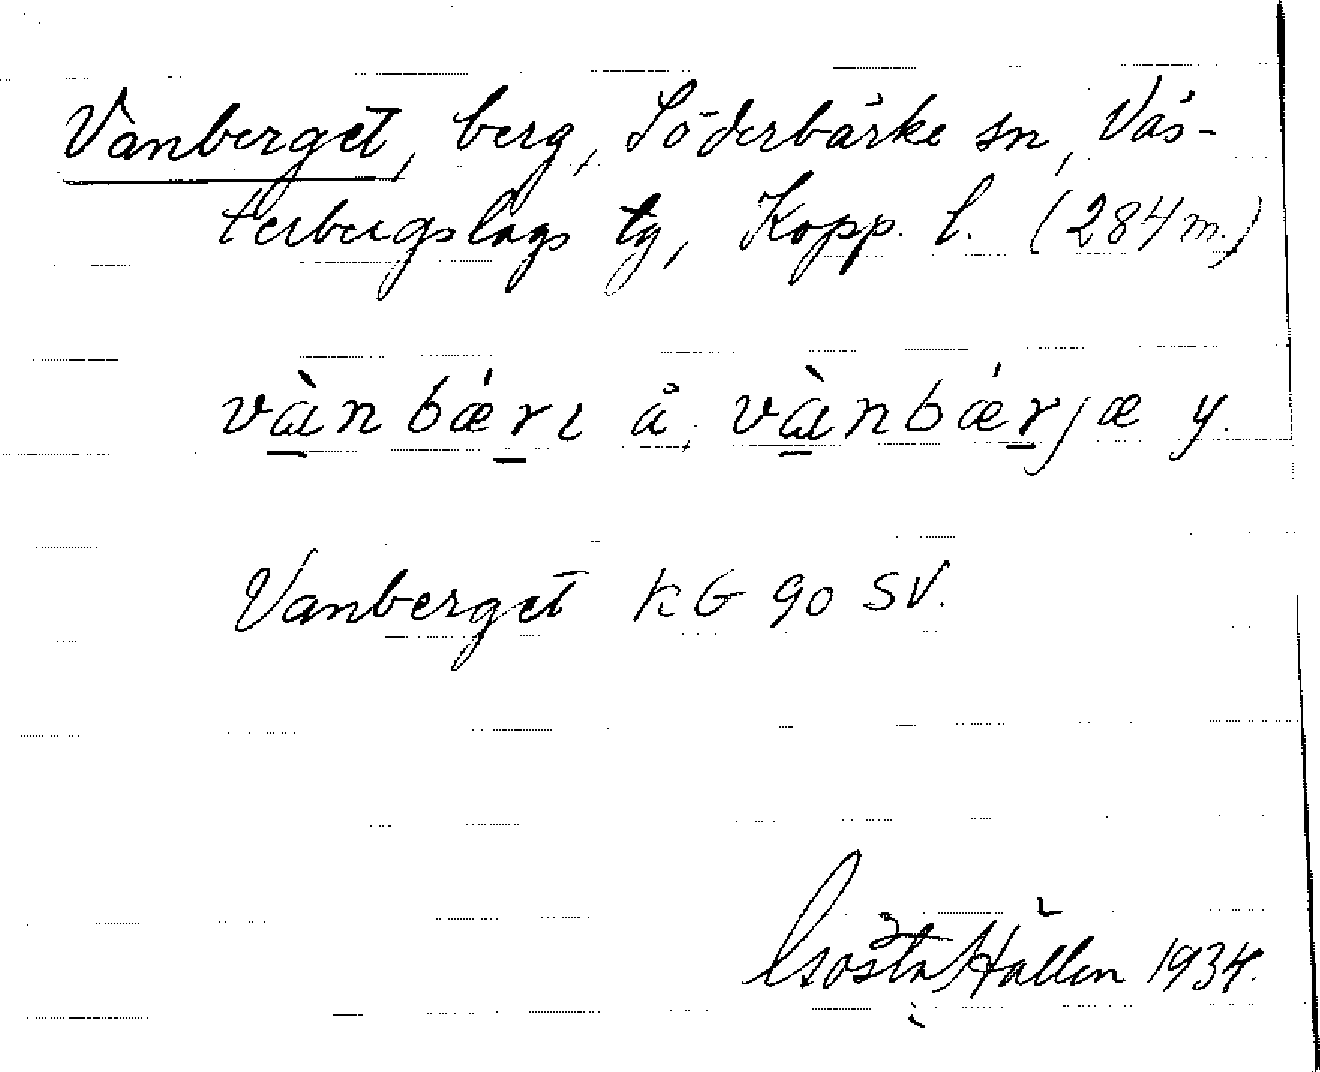 Vanberget, berg, Söderbärke sn, Väs-
terbergslags tg, Kopp. l. (284 m.)
vànbæ̀rı å, vànbæ̀rjæ y.
Vanberget KG 90 SV.
Gösta Hallen 1934.